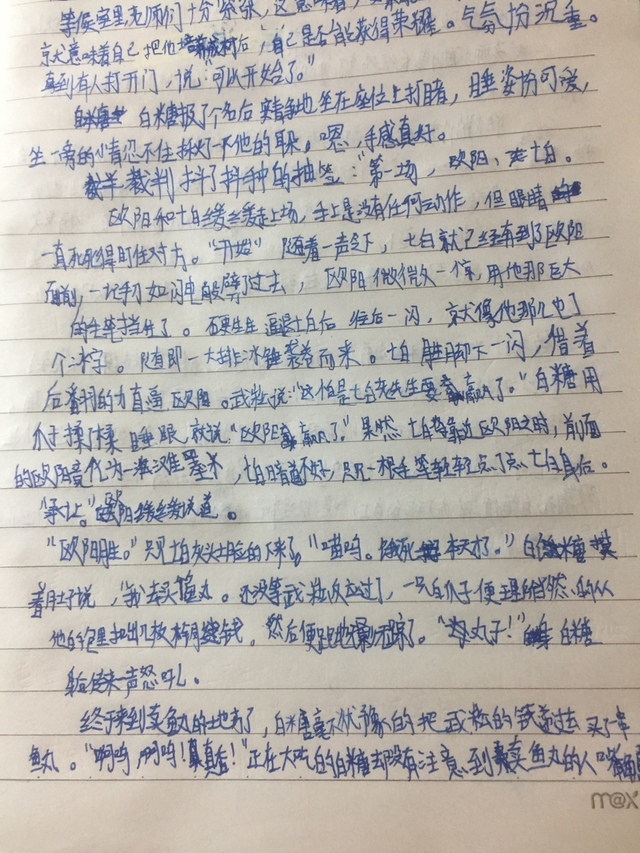 等候室里老师们十分紧张，这意味着，
就意味着自己把他培养成材后，自己是否能获得荣耀。气氛扮沉重。
直到有人打开门，说："可以开始了。"
白糖报了个名后安静地坐在座位上打瞌，睡姿扮可爱，
坐一旁的小青忍不住揪了一下他的耳朵。嗯，手感真好。
裁判抖了抖手中的抽签："第一场，欧阳，七白。
欧阳和七白缓缓走上场，手上是没有任何动作，但眼睛
一直死死得盯住对方。"开始"随着一声令下，七白就已经有到了欧阳
面前，一记手刀如闪电般劈了过去，欧阳微微一惊，用他那巨大
的毛笔挡住了。石更生生逼退七白后往后一闪，就像他那儿也了
个冰字。随即一大排冰锥袭卷而来。七白月生却下一闪，借着
后着羽的力直逼欧阳。武崧说："这怕是七白老先生要赢了。"白糖用
爪子揉了揉睡眼，就说"欧阳赢了。"果然七白靠近欧阳之时，前面
的欧阳竟化为一滩墨水，七白暗道不好，只见一根毛笔轻轻点了点七白身后。
"承让。"欧阳缓缓说道。
"欧阳胜。"只见七白灰头土脸的下来了。"喵呜。饿死本大了。"白糖摸
着肚子说，"我去买鱼丸。还没等武崧反应过了，一只白爪子便理所当然的从
他的包里扣出几枚 钱，然后便跑 不见踪了。"丸子！"白糖
身后传来一声怒吼。
终于来到卖鱼丸的地方了，白糖毫不犹豫的把武崧的钱 过去买了一串
鱼丸。"啊呜，啊呜！真香！"正在大吃的白糖却没有注意到卖鱼丸的人嘴角
m@x